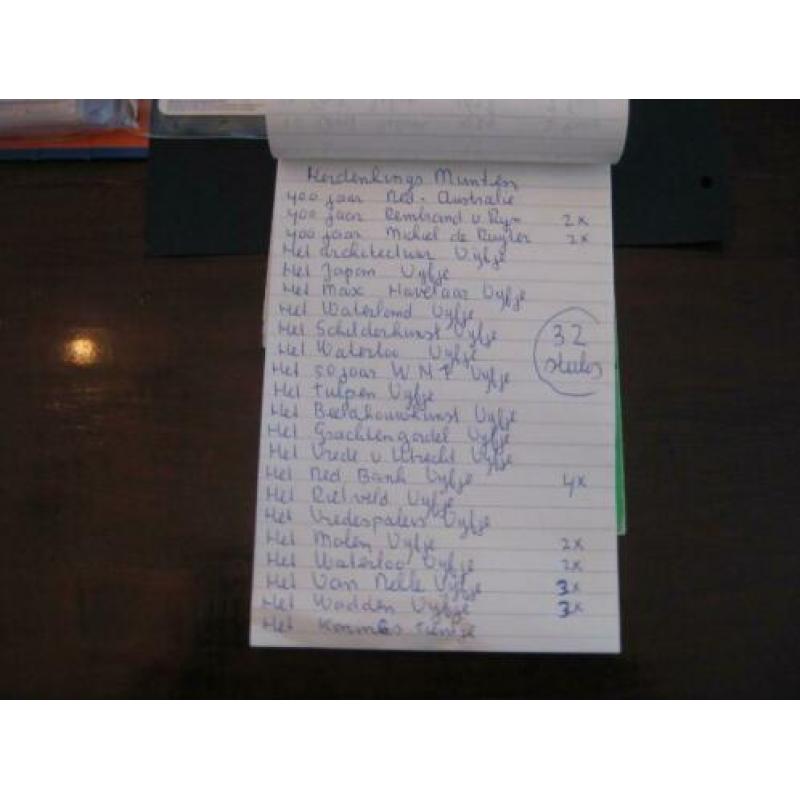 Herdenkings Munten
400 jaar Ned. Australie
400 jaar Rembrand v. Ryn 2x
400 jaar Michiel de Ruyter 2x
Het architectuur Vyfje
Het Japan Vyfje
Het Max Havelaar Vyfje
Het Waterland Vyfje
Het Schilderkunst Vyfje
Het Waterloo Vyfje
32
stuks
Het 50 jaar W N F Vyfje
Het Tulpen Vyfje
Het Beeldhouwkunst Vyfje
Het Grachtengordel Vyfje
Het Vrede v Utrecht Vyfje
Het Ned Bank Vyfje 4x
Het Rietveld Vyfje
Het Vredespaleis Vyfje
Het Molen Vyfje 2x
Het Waterloo Vyfje 2x
Het Van Nelle Vyfje 3x
Het Wadden Vyfje 3x
Het Konings Tientje